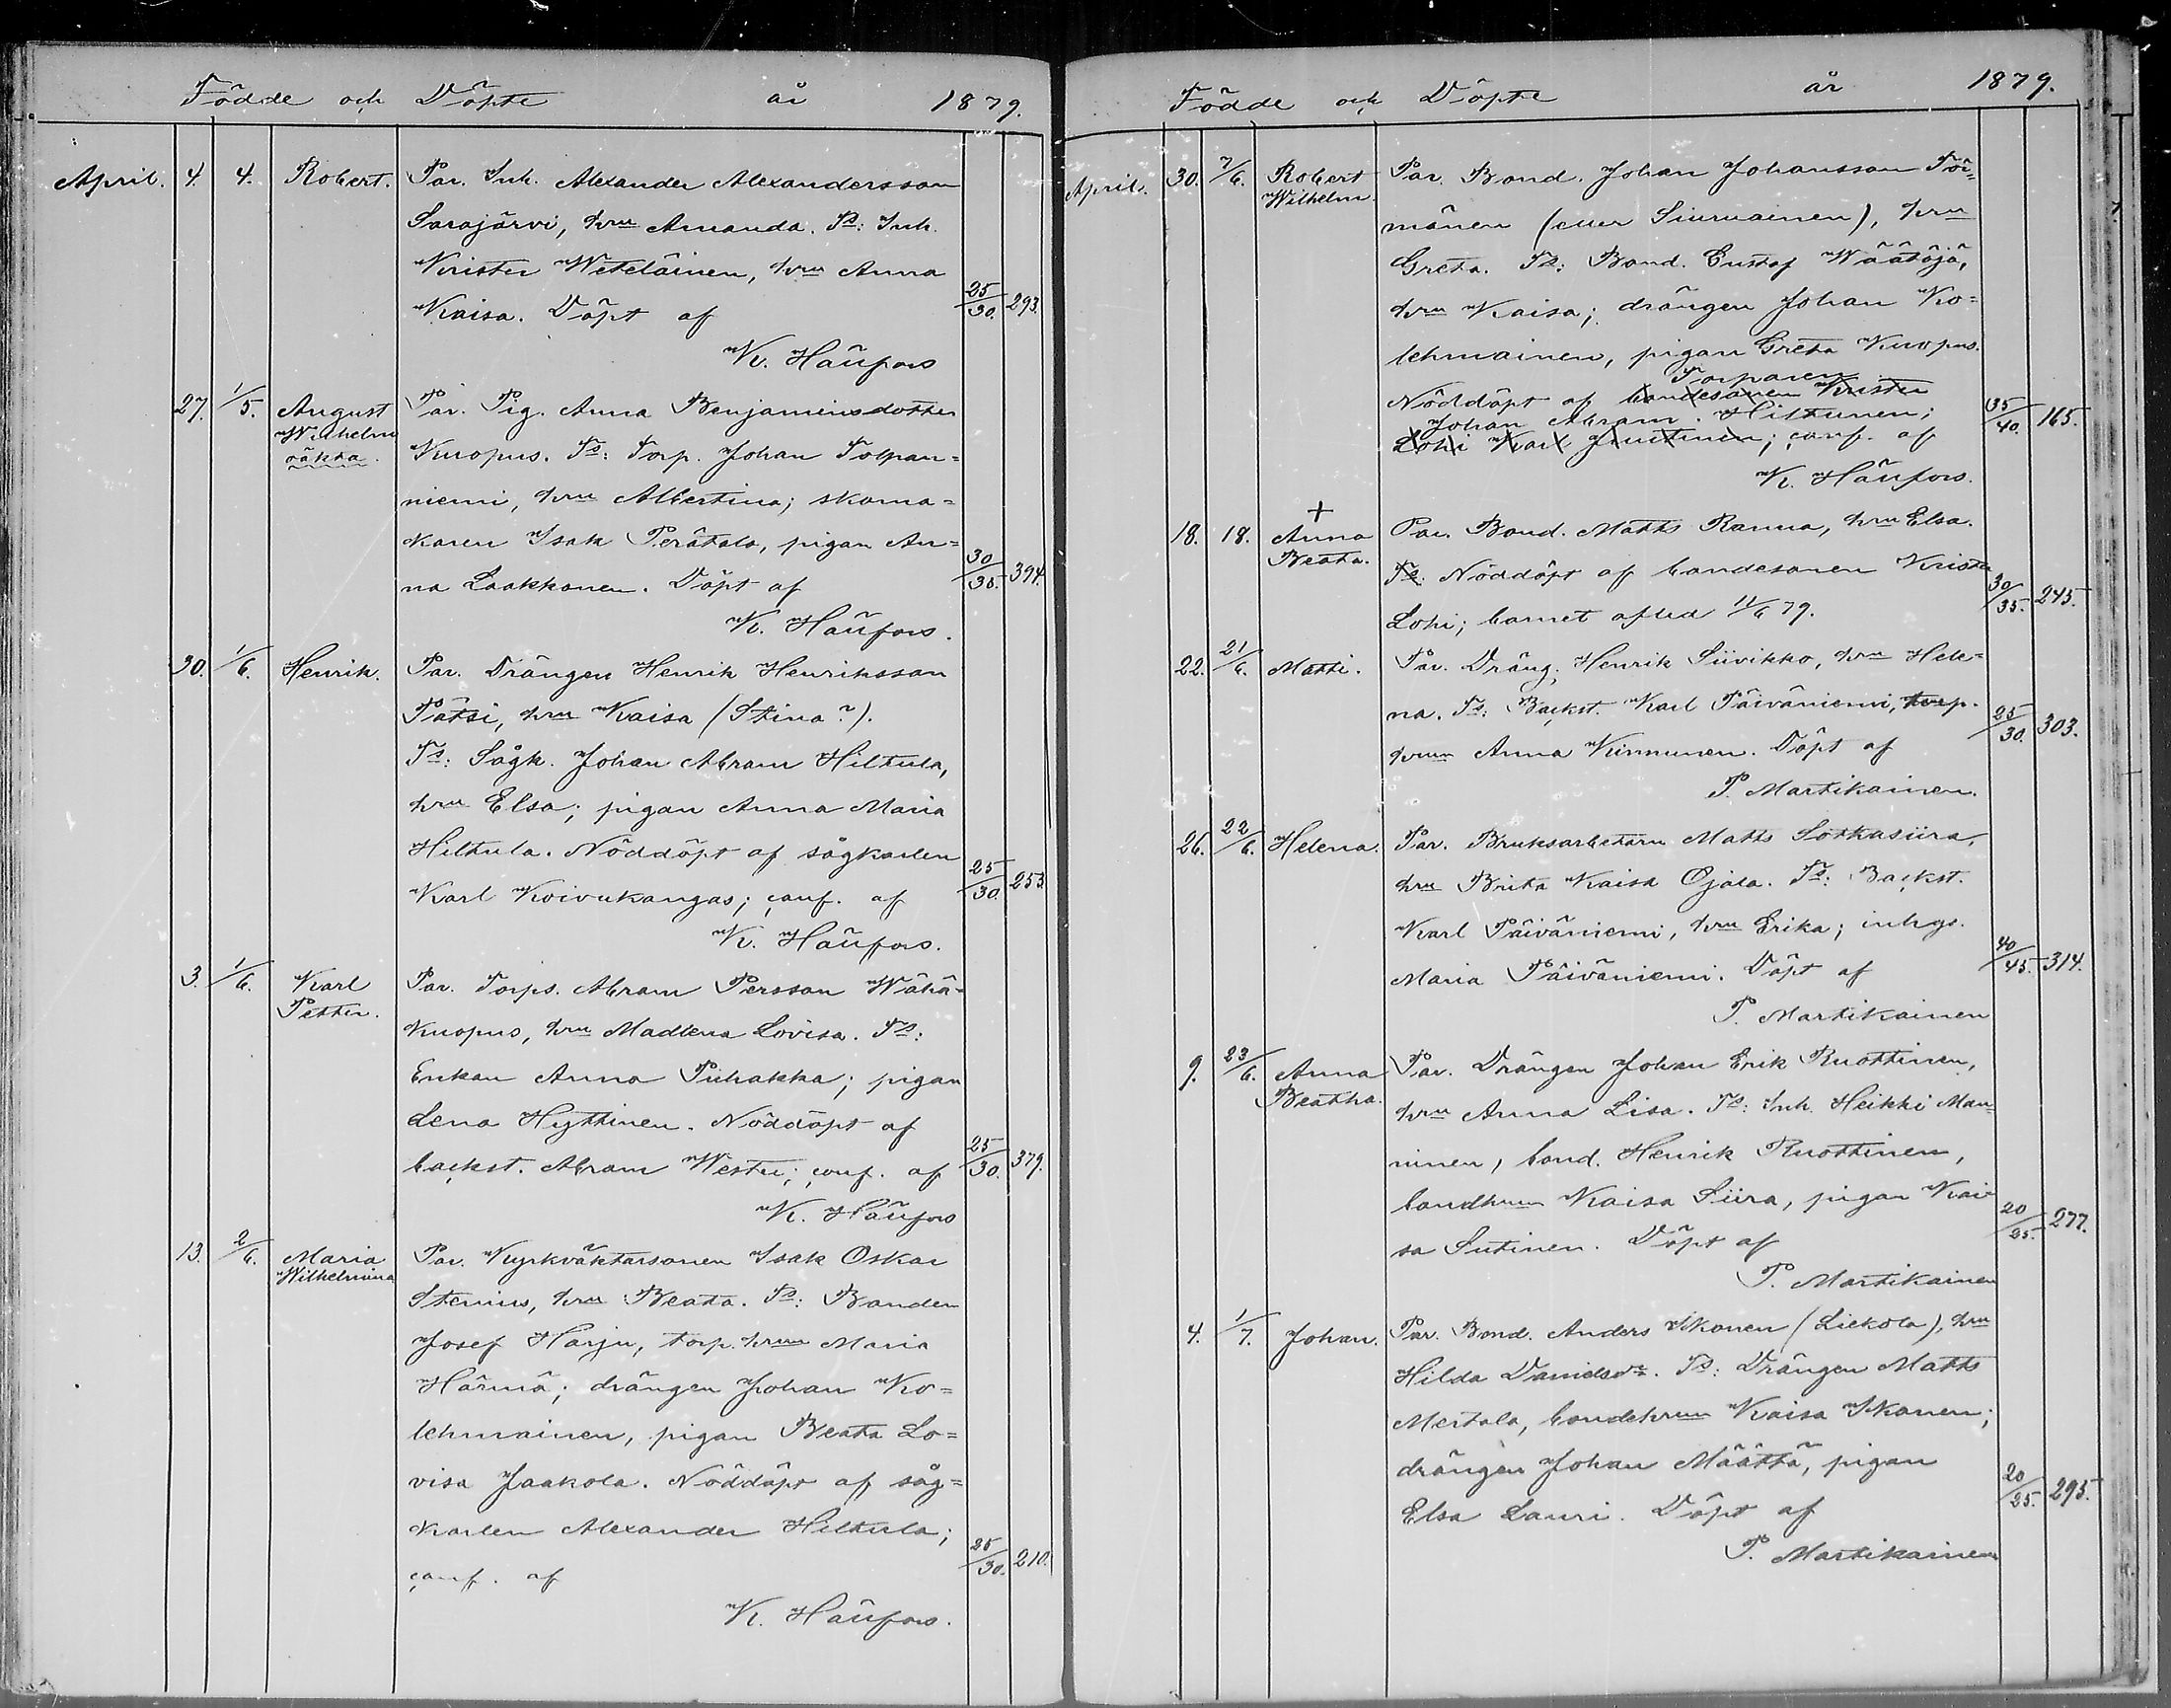 Födde och Döpte år 1879.
April. 4. 4. Robert. Par. Inh. Alexander Alexandersson
Sarajärvi, hru Amanda. Ts: Inh.
Krister Weteläinen, hru Anna
Kaisa. Döpt af 25/30. 293.
K. Häufors
27. 1/5. August Par. Pig. Anna Benjaminsdotter
Wilhelm Kuopus. Ts: Torp. Johan Tolpan=
oäkta. niemi, hru Albertina; skoma=
karen Isak Perätalo, pigan An=
na Laakkonen. Döpt af 30/35. 394.
K. Häufors.
30. 1/6. Henrik. Par. Drängen Henrik Henriksson
Pätsi, hru Kaisa (Stina?).
Ts: Sågk. Johan Abram Hiltula,
hru Elsa; pigan Anna Maria
Hiltula. Nöddöpt af sågkarlen
Karl Koivukangas; conf. af 25/30. 253.
K. Häufors.
3. 1/6. Karl Par. Torps. Abram Persson Wähä=
Petter. kuopus, hru Madlena Lovisa. Ts:
Enkan Anna Puhakka; pigan
Lena Hyttinen. Nöddöpt af
backst. Abram Wester; conf. af 25/30. 379.
K. Häufors
13. 2/6. Maria Par. Kyrkväktarsonen Isak Oskar
Wilhelmina Stenius, hru Beata. Ts: Bonden
Josef Harju, torp. hrun Maria
Härmä; drängen Johan Ko=
lehmainen, pigan Beata Lo=
visa Jaakola. Nöddöpt af såg=
karlen Alexander Hiltula; 25/30. 210.
conf. af
K. Häufors.
Födde och Döpte år 1879.
April. 30. 7/6. Robert Par. Bond. Johan Johansson Tör=
Wilhelm. mänen (eller Siurnainen), hru
Greta. Ts: Bond. Gustaf Väätäjä,
hru Kaisa; drängen Johan Ko=
lehmainen, pigan Greta Kuopus.
Torparen
Nöddöpt af bondesonen Krister
Johan Abram Hiltunen; 35/40. 165.
Lohi Karl Juntinen; conf. af
K. Häufors.
+
18. 18. Anna Par. Bond. Matts Ranua, hru Elsa.
Beata. Ts: Nöddöpt af bondesonen Krister
Lohi; barnet afled 11/6 79. 30/35. 245.
22. 21/6. Matti. Par. Dräng. Henrik Siivikko, hru Hele=
na. Ts: Backst. Karl Päiväniemi, torp.
hrun Anna Kinnunen. Döpt af 25/30. 303.
P. Martikainen.
26. 22/6. Helena. Par. Bruksarbetarn Matts Sotkasiira,
hru Brita Kaisa Ojala. Ts: Backst.
Karl Päiväniemi, hru Erika; inhys.
Maria Päiväniemi. Döpt af 40/45. 314.
P. Martikainen
9. 23/6. Anna Par. Drängen Johan Erik Ruottinen,
Beatha. hru Anna Lisa. Ts: Inh. Heikki Man=
ninen, bond. Henrik Ruottinen,
bondhrun Kaisa Siira, pigan Kai=
sa Sutinen. Döpt af 20/25. 277.
P. Martikainen
4. 1/7. Johan. Par. Bond. Anders Ikonen (Liekola), hru
Hilda Davidsdr. Ts: Drängen Matts
Mertala, bondehrun Kaisa Ikonen;
drängen Johan Määttä, pigan
Elsa Lauri. Döpt af 20/25. 295.
P. Martikainen